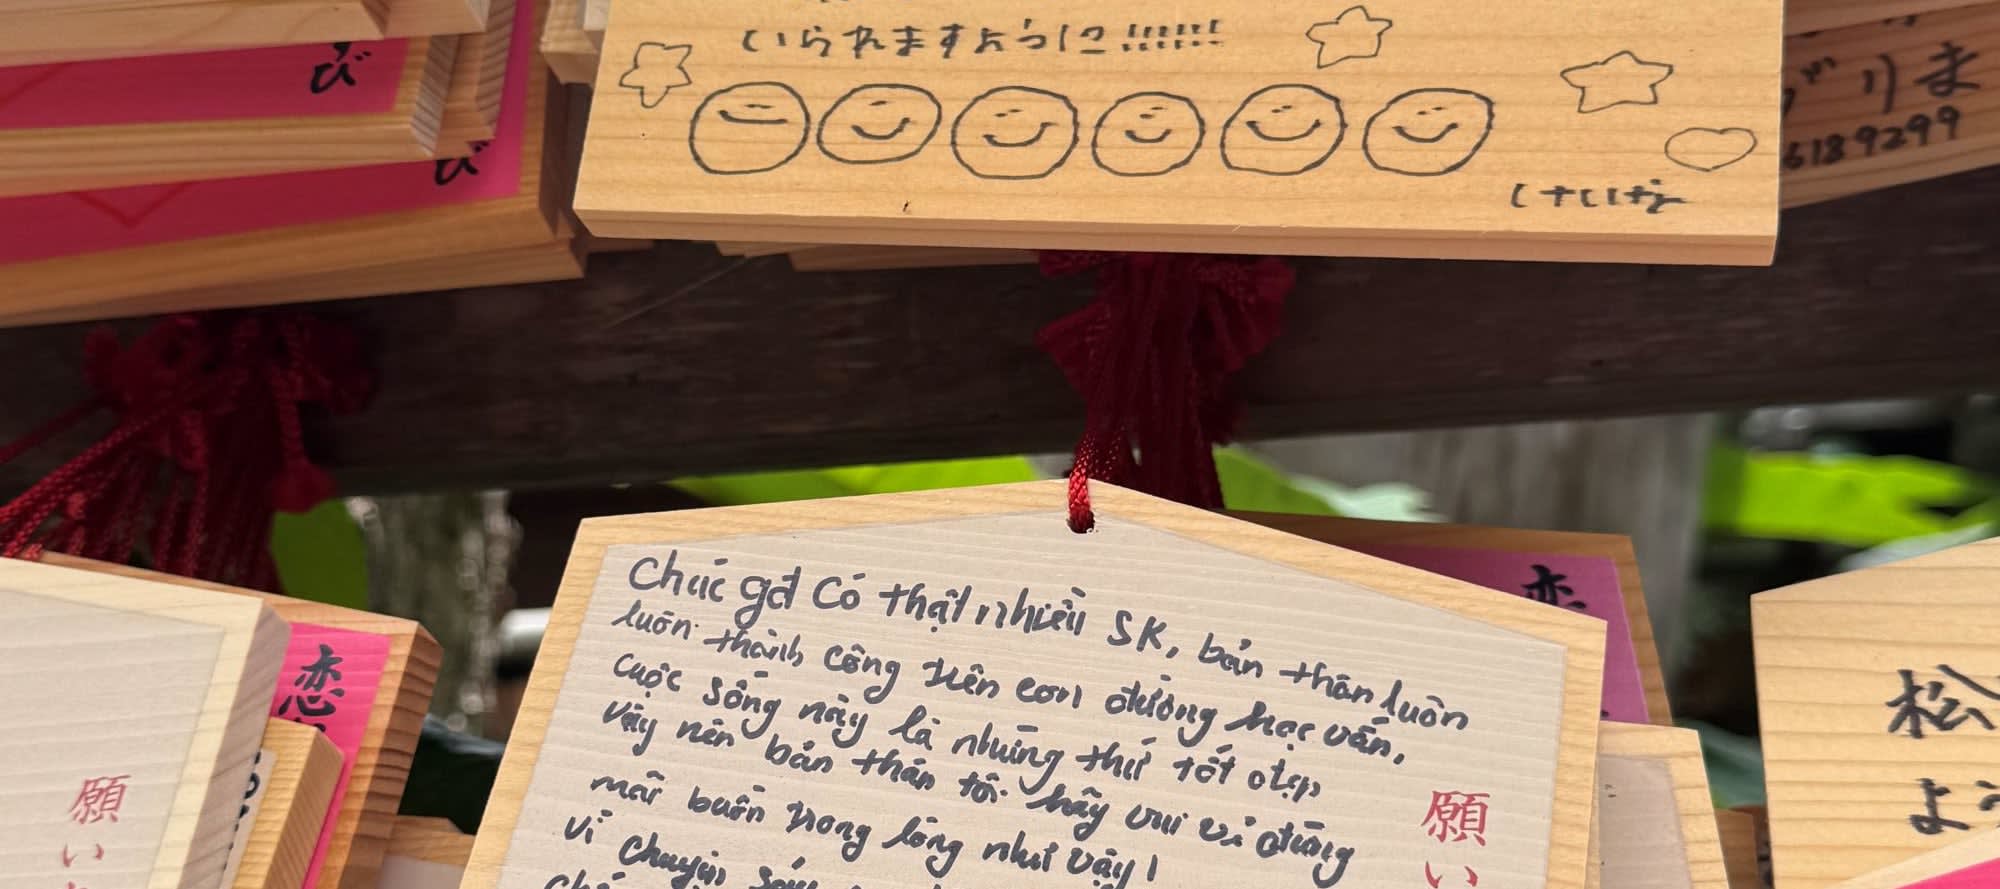 び
び
いられますように!!!!!!
りま
6189299
恋
Chúc gđ có thật nhiều SK, bản thân luôn
luôn thành công trên con đường học vấn,
cuộc sống này là những thứ tốt đẹp
vậy nên bản thân tôi hãy vui vẻ đừng
mãi buồn trong lòng như vậy!
vì chuyện
願い
恋
願い
松
よう